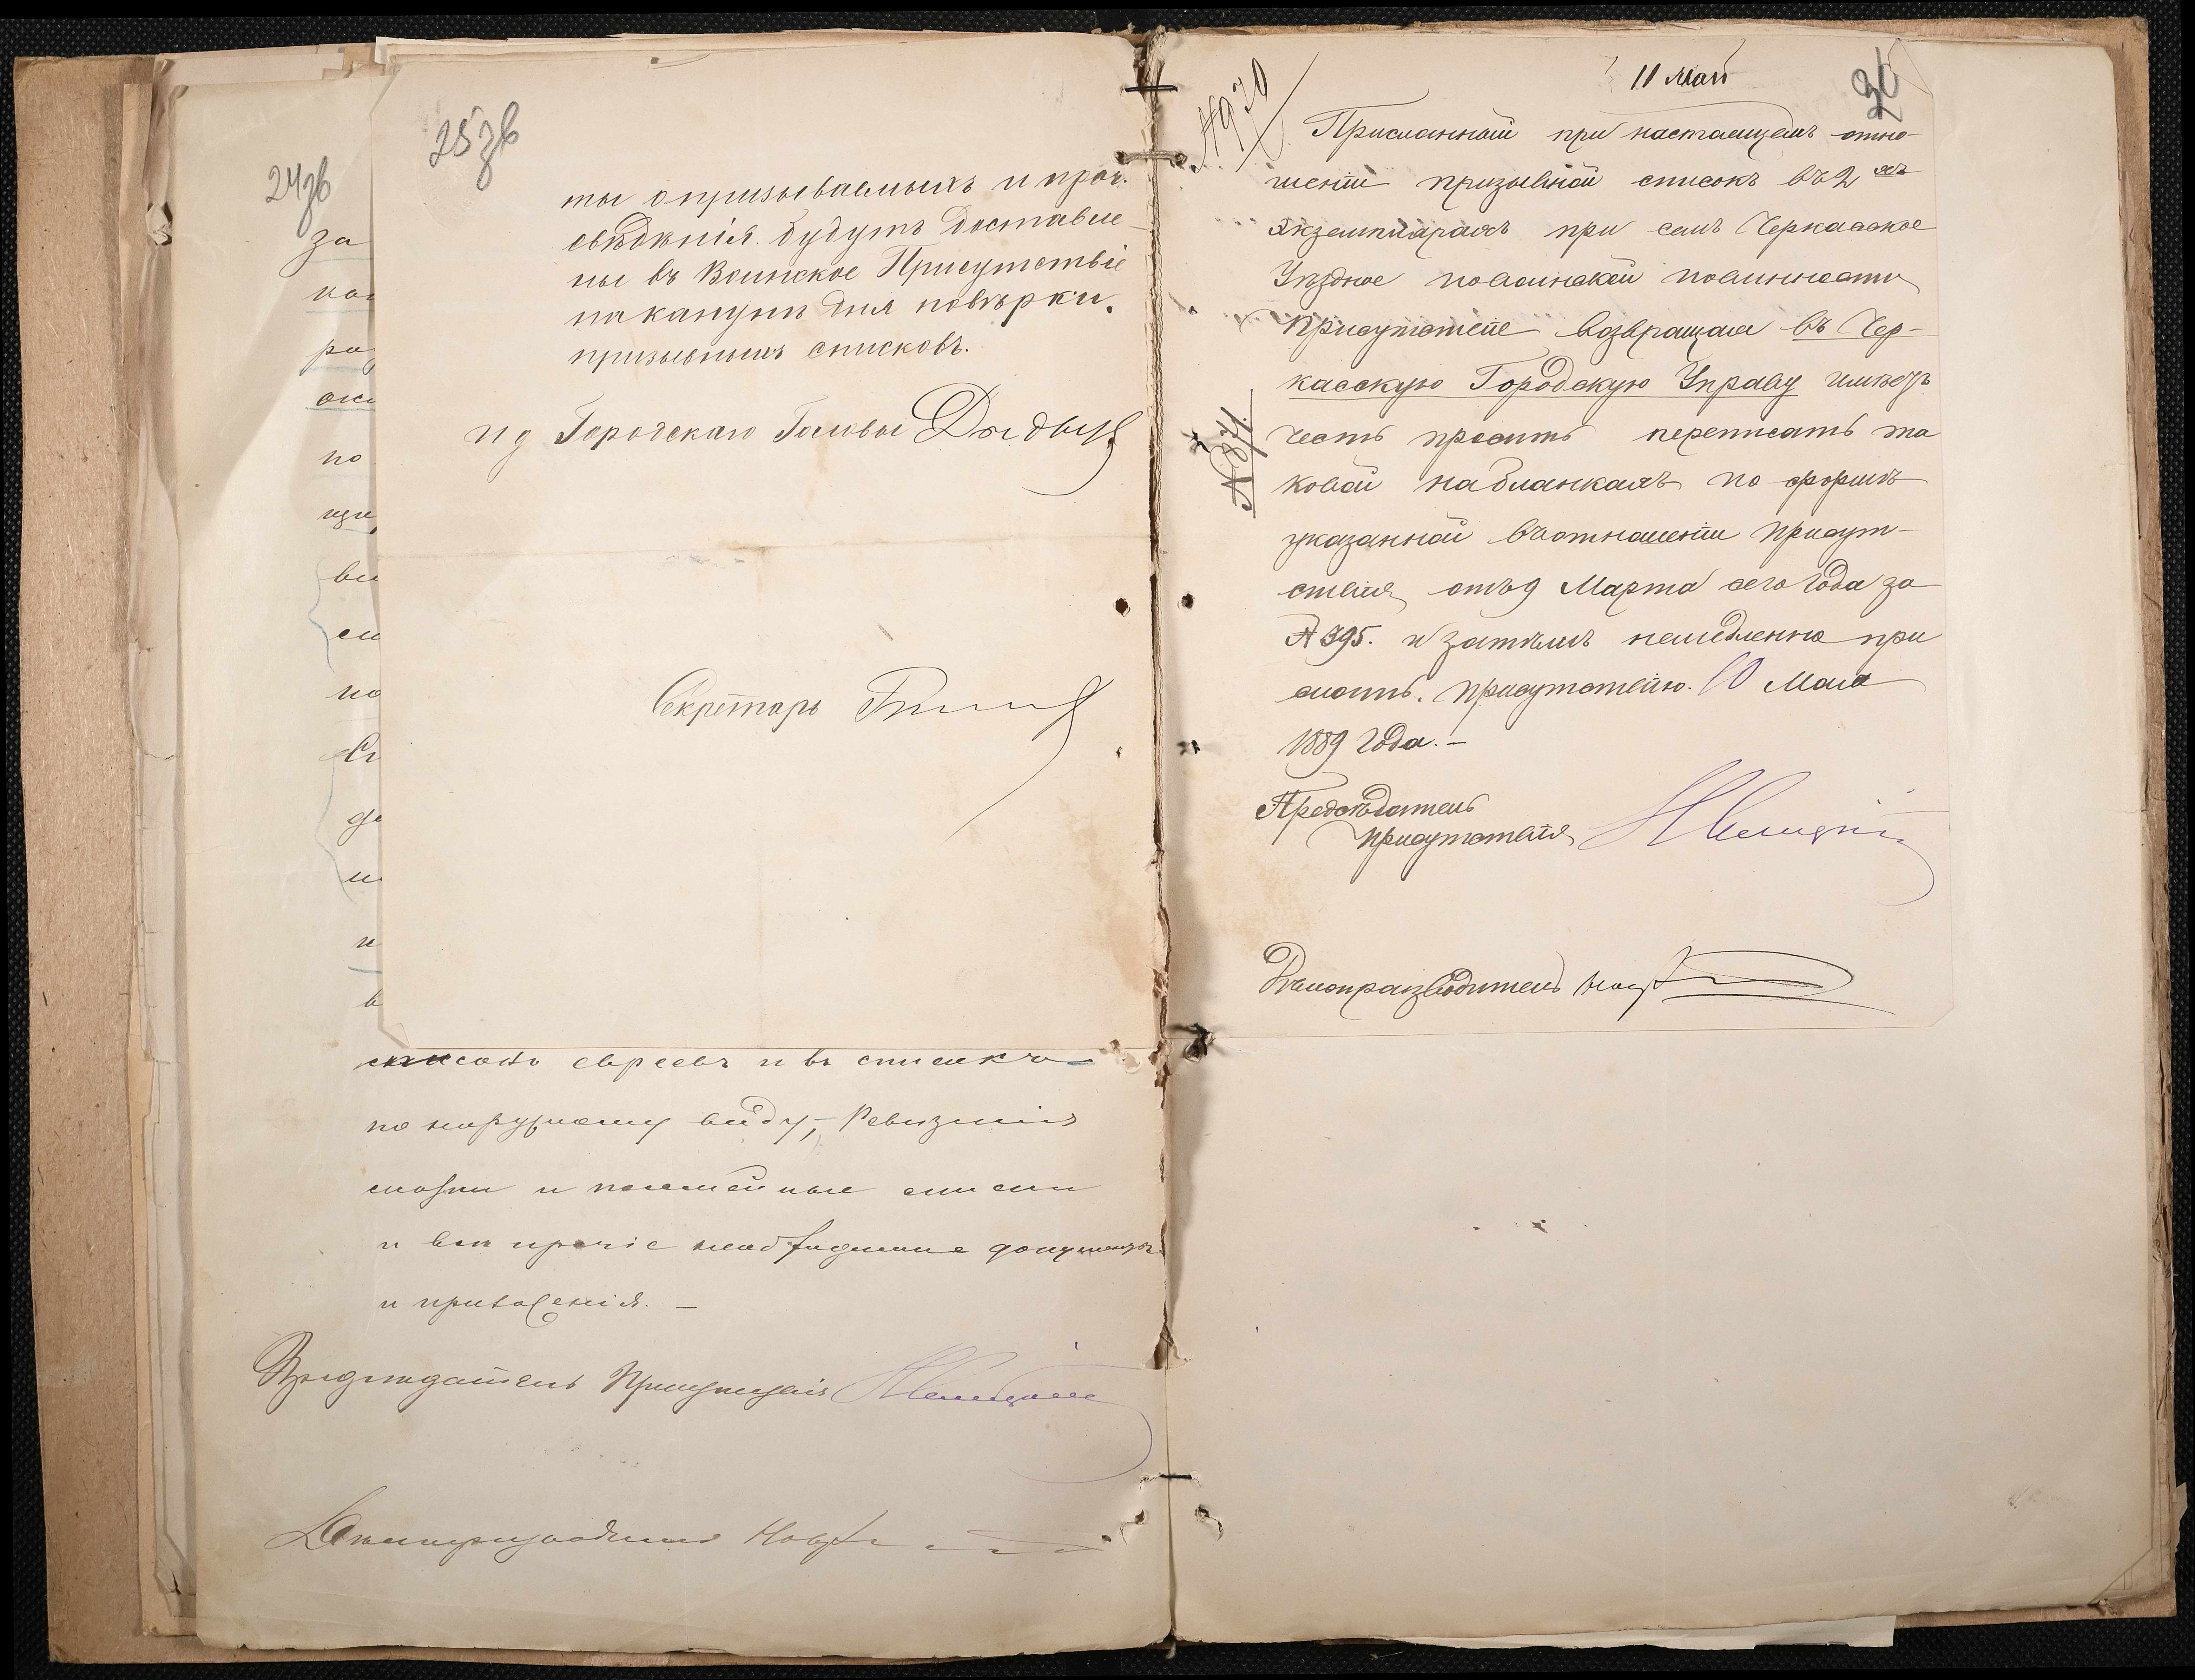 24зв
за
по
25зв
ты о призываемыхъ и проч.
свѣдѣнія будутъ доставле-
ны въ Воинское Присутствіе
наканунѣ дня повѣрки
призывныхъ списковъ.
И д Городскаго Головы
Секретарь
евреевъ и въ списке
по наружному виду, Ревизскія
сказки и посемейные списки
и все прочіе необходимые документы
и приложенія. —
Предсѣдатель Присутствія
Дѣлопроизводитель
11 Мая
26
№ 970
Присланный при настоящемъ отно-
шеніи призывной списокъ въ 2 хъ
экземплярахъ при семъ Черкасское
Уѣздное по воинской повинности
присутствіе возвращая въ Чер-
касскую Городскую Управу имѣетъ
честь просить переписать та
ковой на бланкахъ по формѣ
указанной въ отношеніи присут-
ствія отъ 9 Марта сего года за
№ 395. и затѣмъ немедленно при
слать. присутствію. 10 Мая
1889 года. —
№ 871.
Предсѣдатель
присутствія
Дѣлопроизводитель